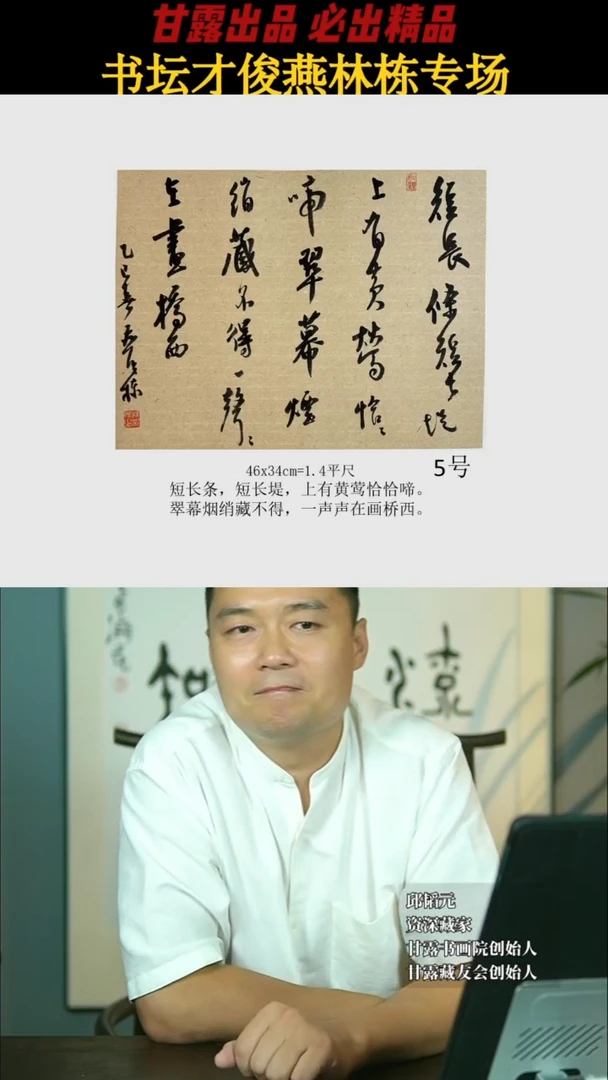 甘露出品 必出精品
书坛才俊燕林栋专场
短长條短长堤
上有黄鶯恰〻
啼翠幕煙
绡藏不得一聲〻
在畫橋西
乙巳春
46x34cm=1.4平尺
5号
短长条，短长堤，上有黄莺恰恰啼。
翠幕烟绡藏不得，一声声在画桥西。
邱韬元
资深藏家
甘露书画院创始人
甘露藏友会创始人